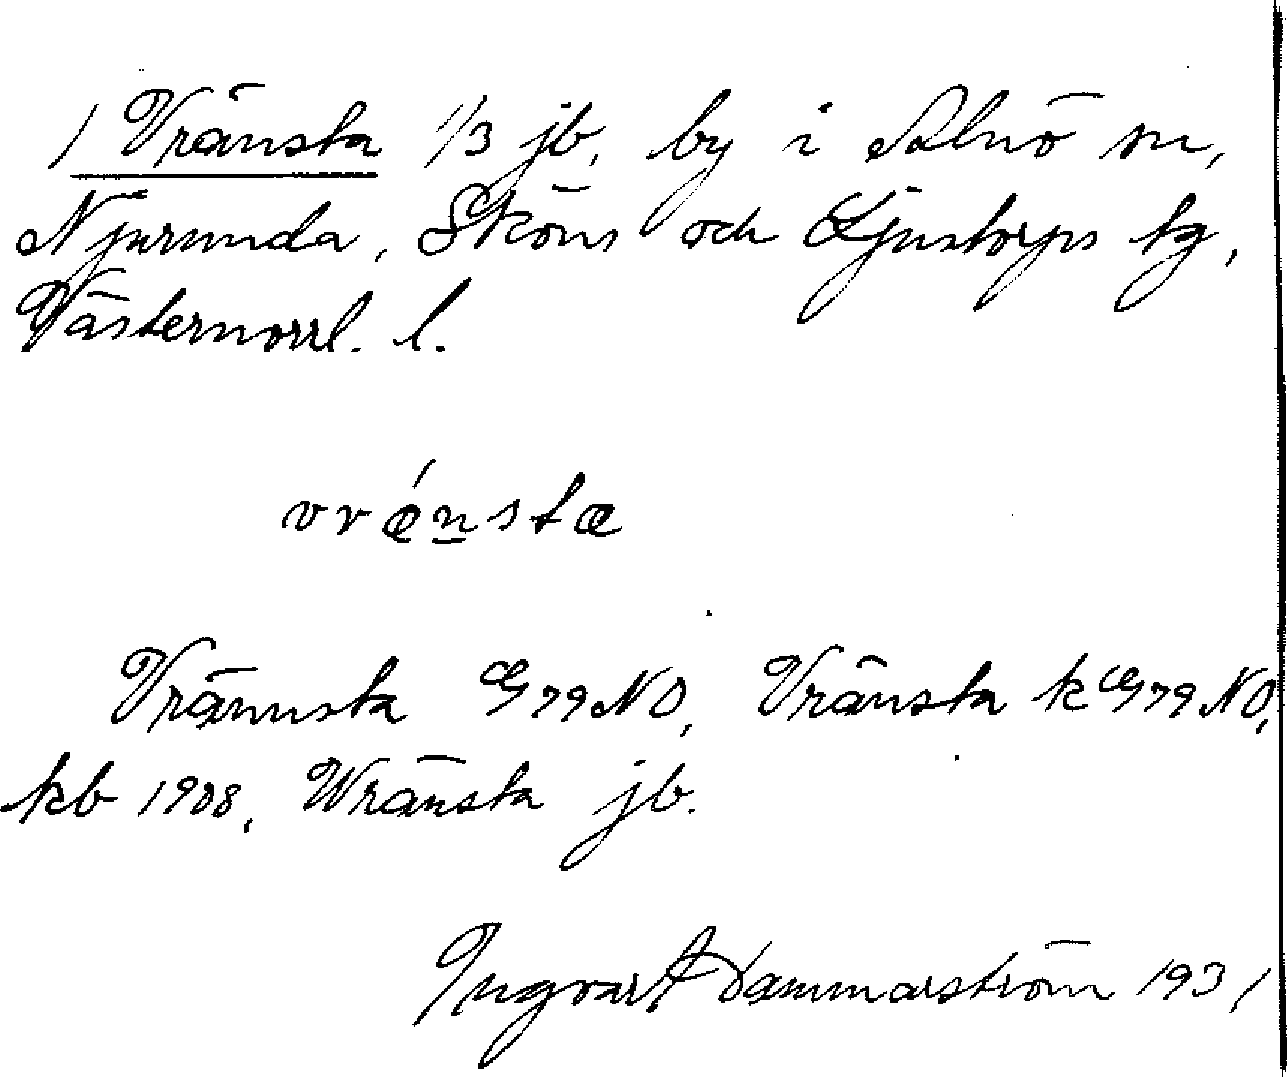 1 Vränsta 1/3 jb. by i Alnö sn,
Njurunda, Sköns och Ljustorps tg,
Västernorrl. l.
vrǽnstæ
Vrännsta G79NO, Vränsta k G79NO,
kb 1908, Wränsta jb.
Ingvar Hammarström 1931